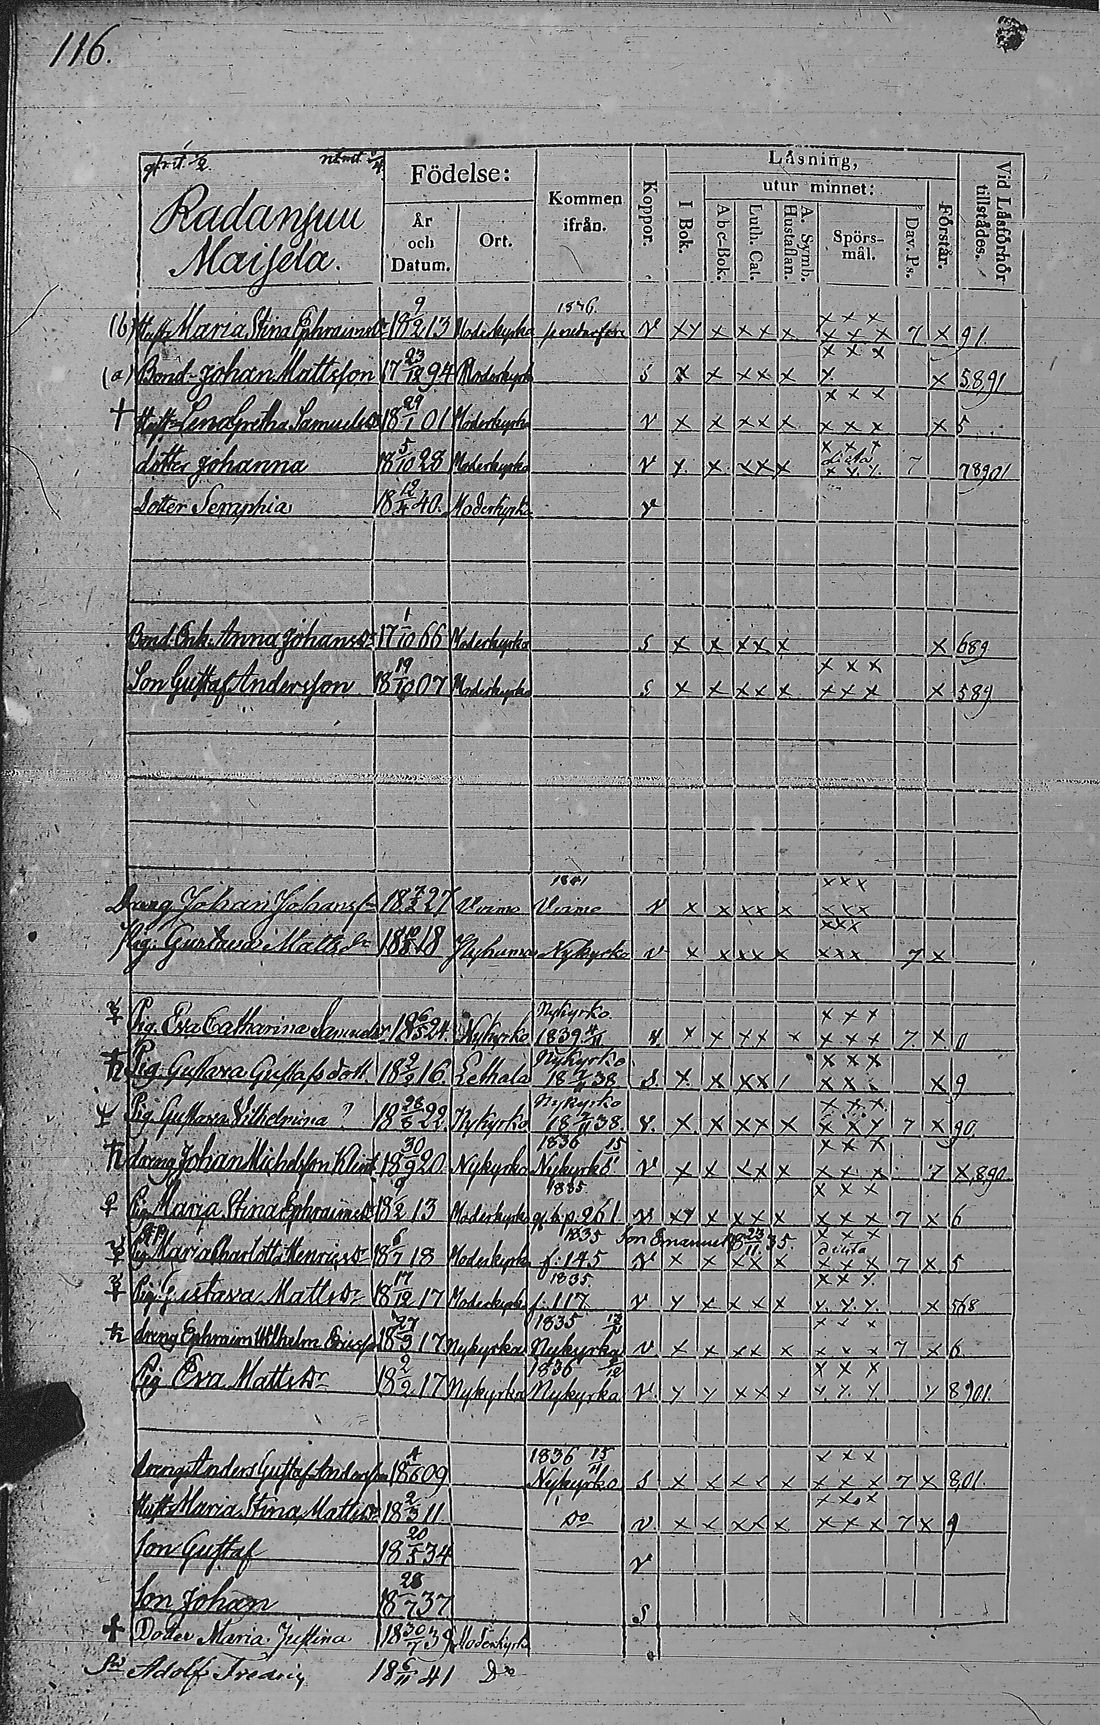 116.
Födelse:
Läsning,
Vid Läsförhör tillstädes.
Radansuu
Maisela.
År och Datum.
Ort.
Kommen ifrån.
Koppor.
I Bok.
utur minnet:
Abc-Bok.
Luth. Cat.
A. Symb. Hustaflan.
Spörsmål.
Dav. Ps.
Förstår.
1836.
(b) Hust. Maria Stina Ephraimsdr 18 9/2 13 Moderkyrka v x x x x x x 7 x 91.
(a) Bond. Johan Mattsson 17 23/12 94 Moderkyrk s x x x x x x x 5891
† Hust. Lena Gretha Samuelsdr 18 29/1 01 Moderkyrka v x x x x x x x x x 5
dotter Johanna 18 5/10 28 Moderkyrka v x x x x x 7 78901
Dotter Seraphia 18 12/4 40. Moderkyrka v
Bond. Enk. Anna Johansdr 17 1/10 66 Moderkyrka s x x x x x x 689
Son Gustaf Andersson 18 19/10 07 Moderkyrka s x x x x x x x x x 589
1841
Dreng Johan Johanss 18 7/2 27 Virmo Virmo v x x x x x x x x
Pig. Gustava Mattsdr 18 18 Nykyrko v x x x x x x x x 7 x
Nykyrko
Pig. Eva Catharina Samuelsdr 18 6/5 24. Nykyrko 1839 4/11 v. x x x x x x x x 7. x 0
Nykyrko
Pig Gustava Gustafsdott. 18 2/2 16. Lethala 18 38 s. x x x x x x x 9
Nykyrko
Pig Gustava Vilhelmina ? 18 28/8 22 Nykyrko 18 38. v. x x x x x x x x 7 x 90.
1836 15
dreng Johan Michelsson Klint 18 30/9 20 Nykyrko Nykyrko v x x x x x x x x 7 x 890
1835
Pig Maria Stina Ephraimsdr 18 9/2 13 Moderkyrka p. 261 v x x x x x x x x x 7 x 6
1835 Son Emanuel 18 23/11 35.
Pig Maria Charlotta Henricsdr 18 6/7 18 Moderkyrka f: 145 v x x x x x x x x 7 x 5
1835
Pig. Gustava Mattsdr 18 17/12 17 Moderkyrka f: 117 v x x x x x x x x x 568
1835 12
dreng Ephraim Wilhelm Ericsson 18 27/3 17 Nykyrka Nykyrka v x x x x x x x x 7 x 6
1836
Pig Eva Mattsdr 18 2/2 17 Nykyrka Nykyrka v x x x x x x x x x 8901.
1836 15/11
dreng Anders Gustaf Andersson 18 4/6 09 Nykyrko s x x x x x x x x 7 x 801.
Hust. Maria Stina Mattsdr 18 2/3 11 Do v x x x x x x x x 7 x 9
Son Gustaf 18 20/5 34 v
Son Johan 18 28/7 37 s
† Dotter Maria Justina 18 30/7 39 Moderkyrk
Adolf Fredric 18 6/11 41 Do